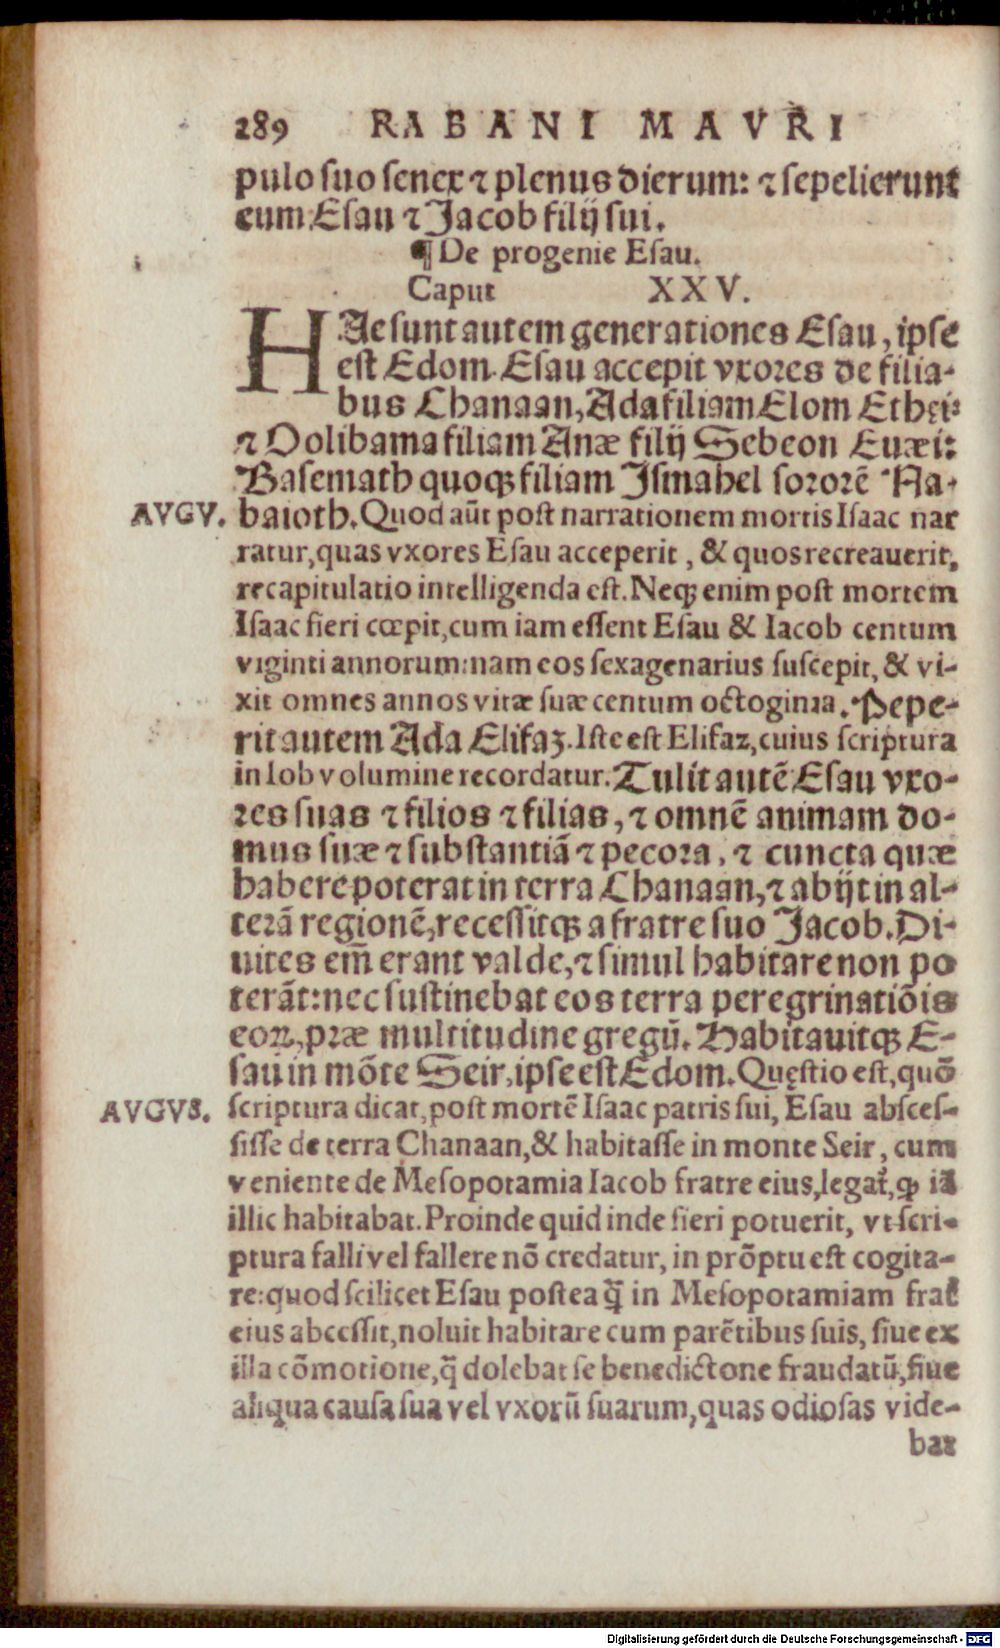 289 RABANI MAVRI
pulo suo senex ⁊ plenus dierum: ⁊ sepelierunt
eum Esau ⁊ Jacob filij sui.
¶ De progenie Esau.
Caput XXV.
HAe sunt autem generationes Esau, ipse
est Edom. Esau accepit vxores de filia-
bus Chanaan, Ada filiam Elom Ethęi:
⁊ Oolibama filiam Anæ filij Sebeon Euæi:
Basemath quoqꝫ filiam Ismahel sororē Na-
AVGV. baioth. Quod aũt post narrationem mortis Isaac nar
ratur, quas vxores Esau acceperit, & quos recreauerit,
recapitulatio intelligenda est. Neqꝫ enim post mortem
Isaac fieri cœpit, cum iam essent Esau & Iacob centum
viginti annorum: nam eos sexagenarius suscepit, & vi-
xit omnes annos vitæ suæ centum octoginta. Pepe-
rit autem Ada Elifaz. Iste est Elifaz, cuius scriptura
in Iob volumine recordatur. Tulit autē Esau vxo-
res suas ⁊ filios ⁊ filias, ⁊ omnē animam do-
mus suæ ⁊ substantiā ⁊ pecora, ⁊ cuncta quæ
habere poterat in terra Chanaan, ⁊ abijt in al-
terā regionē, recessitqꝫ a fratre suo Jacob. Di-
uites em̄ erant valde, ⁊ simul habitare non po
terāt: nec sustinebat eos terra peregrinatiōis
eoꝝ, præ multitudine gregũ. Habitauitqꝫ E-
sau in mōte Seir, ipse est Edom. Quęstio est, quō
AVGVS. scriptura dicat, post mortē Isaac patris sui, Esau absces-
sisse de terra Chanaan, & habitasse in monte Seir, cum
veniente de Mesopotamia Iacob fratre eius, legat᷑, ꝙ iā
illic habitabat. Proinde quid inde fieri potuerit, vt scri-
ptura falli vel fallere nō credatur, in prōptu est cogita-
re: quod scilicet Esau postea q̄ in Mesopotamiam frať
eius abcessit, noluit habitare cum parētibus suis, siue ex
illa cōmotione, q̄ dolebat se benedictone fraudatũ, siue
aliqua causa sua vel vxorũ suarum, quas odiosas vide-
bat
Digitalisierung gefördert durch die Deutsche Forschungsgemeinschaft - DFG